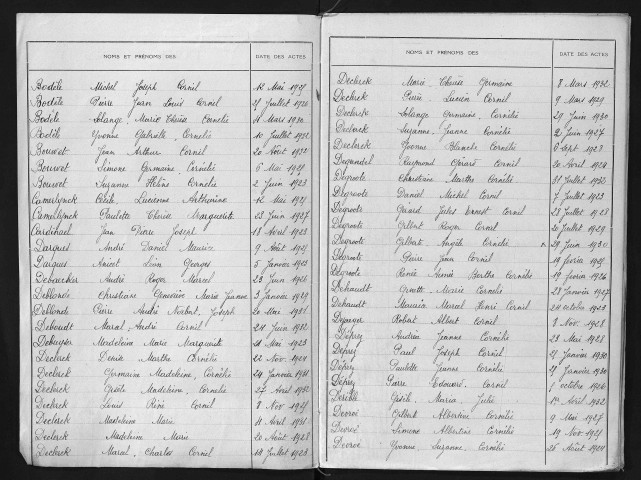 NOMS ET PRÉNOMS DES DATE DES ACTES
Bodèle Michel Joseph Cornil 12 Mai 1929
Bodèle Pierre Jean Louis Cornil Juillet
Bodèle Solange Marie Thérèse Cornélie Mars 1930
Bodèle Yvonne Gabrielle Cornélie 10 Juillet 1932
Bouvet Jean Arthur Cornil 20 Août 1932
Bouvet Simone Germaine Cornélie 6 Mai
Bouvet Suzanne Hélène Cornélie 2 Juin 1923
Camerlynck Cécile Lucienne 12 Mai
Camerlynck Paulette Marguerite 23 Juin 1927
Cardinael Jean Pierre Joseph 18 Avril 1923
Darques André Daniel Maurice 9 Août
Darques Anicet Léon Georges 5 Janvier 1923
André Roger Marcel 23 Juin 1926
Deblonde Christiane Geneviève Marie Jeanne 3 Janvier 1929
Deblonde Pierre André Norbert Joseph 20 Mai 1931
Marcel André Cornil 24 Juin
Madeleine Marie Marguerite Mai 1923
Declerck Denise Marthe Cornélie 22 Nov
Declerck Germaine Madeleine Cornélie 24 Janvier 1931
Declerck Gisèle Madeleine Cornélie 27 Avril 1932
Declerck Louis René Cornil 8 Nov
Declerck Madeleine Marie Avril 1931
Declerck Madeleine Marie 20 Août 1928
Declerck Marcel Charles Cornil Juillet
NOMS ET PRÉNOMS DES DATE DES ACTES
Declerck Marie Thérèse Germaine 8 Mars 1932
Declerck Pierre Lucien Cornil 9 Mars 1929
Declerck Solange Germaine Cornélie 29 Juin 1930
Declerck Suzanne Jeanne Cornélie 2 Juin 1927
Declerck Yvonne Blanche Cornélie 6 Sept 1923
Raymond Gérard Cornil 20 Avril 1924
Degroote Christiane Marthe Cornélie 31 Juillet 1932
Degroote Daniel Michel Cornil 7 Juillet 1923
Degroote Gérard Jules Ernest Cornil 28 Juillet 1928
Degroote Gilbert Roger Cornil 20 Juillet 1929
Degroote Gilbert Angèle Cornélie 29 Juin
Degroote Pierre Jean Cornil 19 février
Degroote Renée Aimée Berthe Cornélie 19 février 1926
Dehaudt Ornette Marie Cornélie 28 Janvier 1927
Dehaudt Maurice Marcel Henri Cornil 24 octobre 1923
Robert Albert Cornil 8 Nov 1928
Deprey Andrée Jeanne Cornélie 23 Mai 1928
Deprey Paul Joseph Cornil 21 Janvier 1930
Deprey Paulette Jeanne Cornélie 21 Janvier 1930
Deprey Pierre Edouard Cornil 1 octobre 1926
Gisèle Maria Julie Avril 1932
Devroé Gilbert Albertine Cornélie 9 Mai 1927
Devroé Simone Albertine Cornélie 19 Nov
Devroé Yvonne Suzanne Cornélie 25 Août 1924